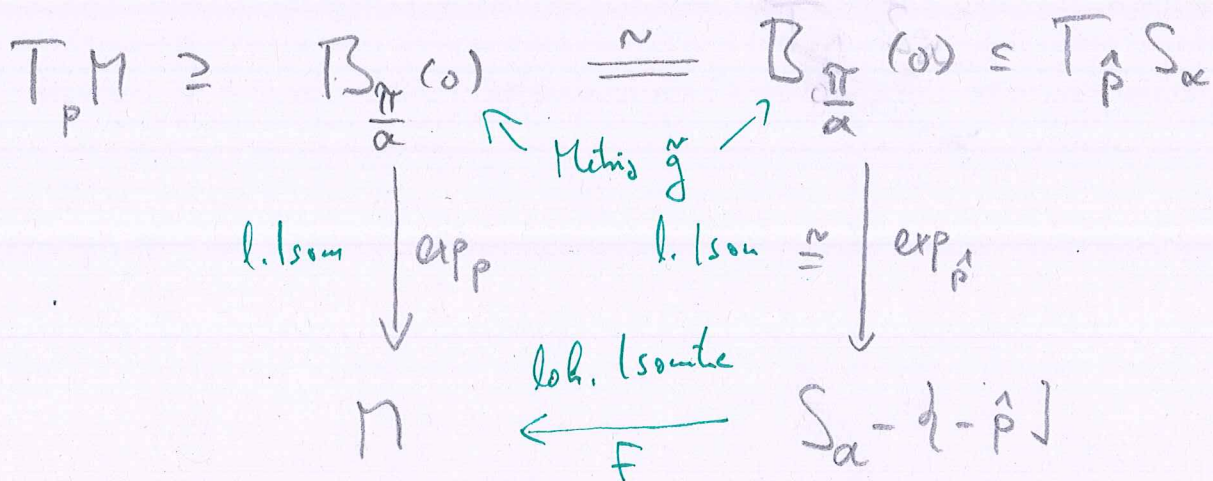 T_p M ⊇ B_{π/a}(0) ≅ B_{π/a}(0) ⊆ T_{p̂} S_a
Metrik g̃
l. Isom exp_p l. Isom ≅ exp_{p̂}
lok. Isometrie
M ← S_a - {-p̂}
F